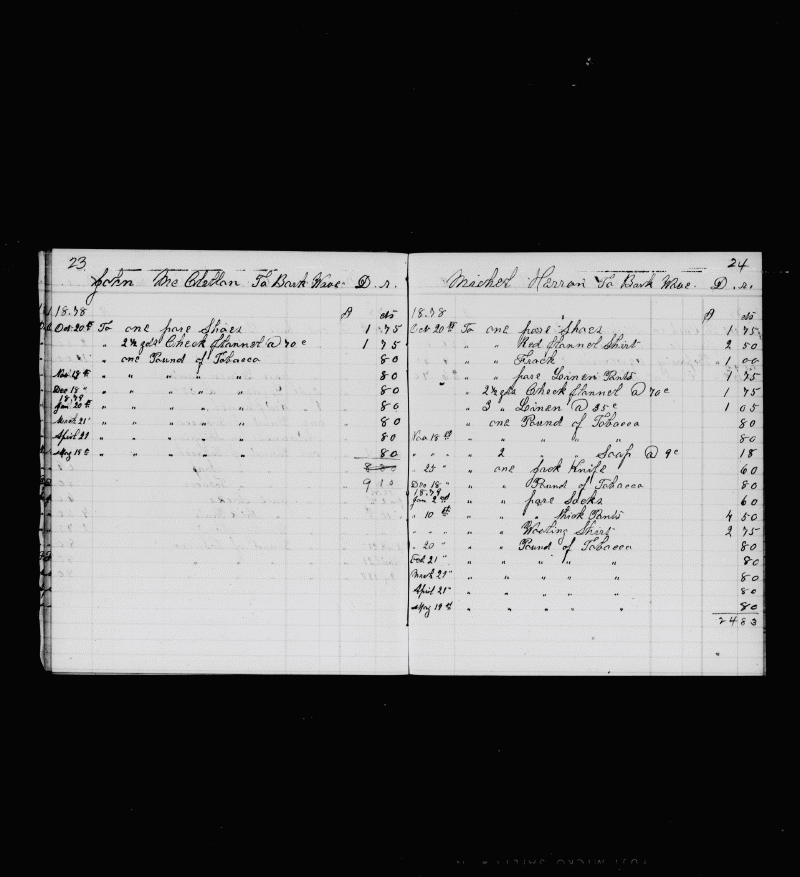 23
John Mc Clellan To Bark Wave D.r.
18.78 $ cts
Oct 20th To one pare Shoes 1 75
" " 2½ yds Check flannel @ 70c 1 75
" " one Pound of Tobacco 80
Nov 18th " " " " " 80
Dec 18 " " " " " " 80
18.79
Jan 20th " " " " " 80
March 21" " " " " " 80
April 21 " " " " " 80
May 18th " " " " " 80
8 30
9 10
24
Michel Herron To Bark Wave D.r.
18.78 $ cts
Oct 20th To one pare Shoes 1 75
" " " Red flannel Shirt 2 50
" " " Frock 1 00
" " " pare Linen Pants 1 75
" " 2½ yds Check flannel @ 70c 1 75
" " 3 " Linen @ 35c 1 05
" one Pound of Tobacco 80
Nov 18th " " " " " 80
" " " 2 " Soap @ 9c 18
" 25 " " one Jack Knife 60
Dec 18 " " " Pound of Tobacco 80
18.79
Jan 2nd " " pare Socks 60
" 10th " " " thick Pants 4 50
" " " " Wooling Shirt 2 75
" 20 " " " Pound of Tobacco 80
Feb 21 " " " " " " 80
March 21" " " " " " 80
April 21" " " " " " 80
May 19th " " " " " 80
24 83